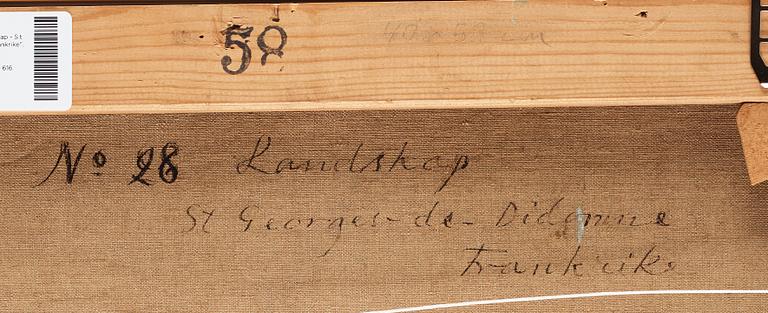 ap - St
nkrike".
616.
50
No 28 Landskap
St Georges-de-Didonne
Frankrike